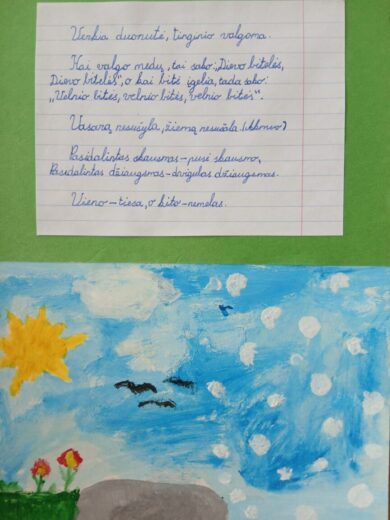 Verkia duonutė, tinginio valgoma.
Kai valgo medų, tai sako: „Dievo bitelės,
Dievo bitelės“, o kai bitė įgelia, tada sako:
„Velnio bitės, velnio bitės, velnio bitės“.
Vasarą nesušyla, žiemą nesušąla (Akmuo)
Pasidalintas skausmas – pusė skausmo,
Pasidalintas džiaugsmas – dvigubas džiaugsmas.
Vieno – tiesa, o kito – nemelas.